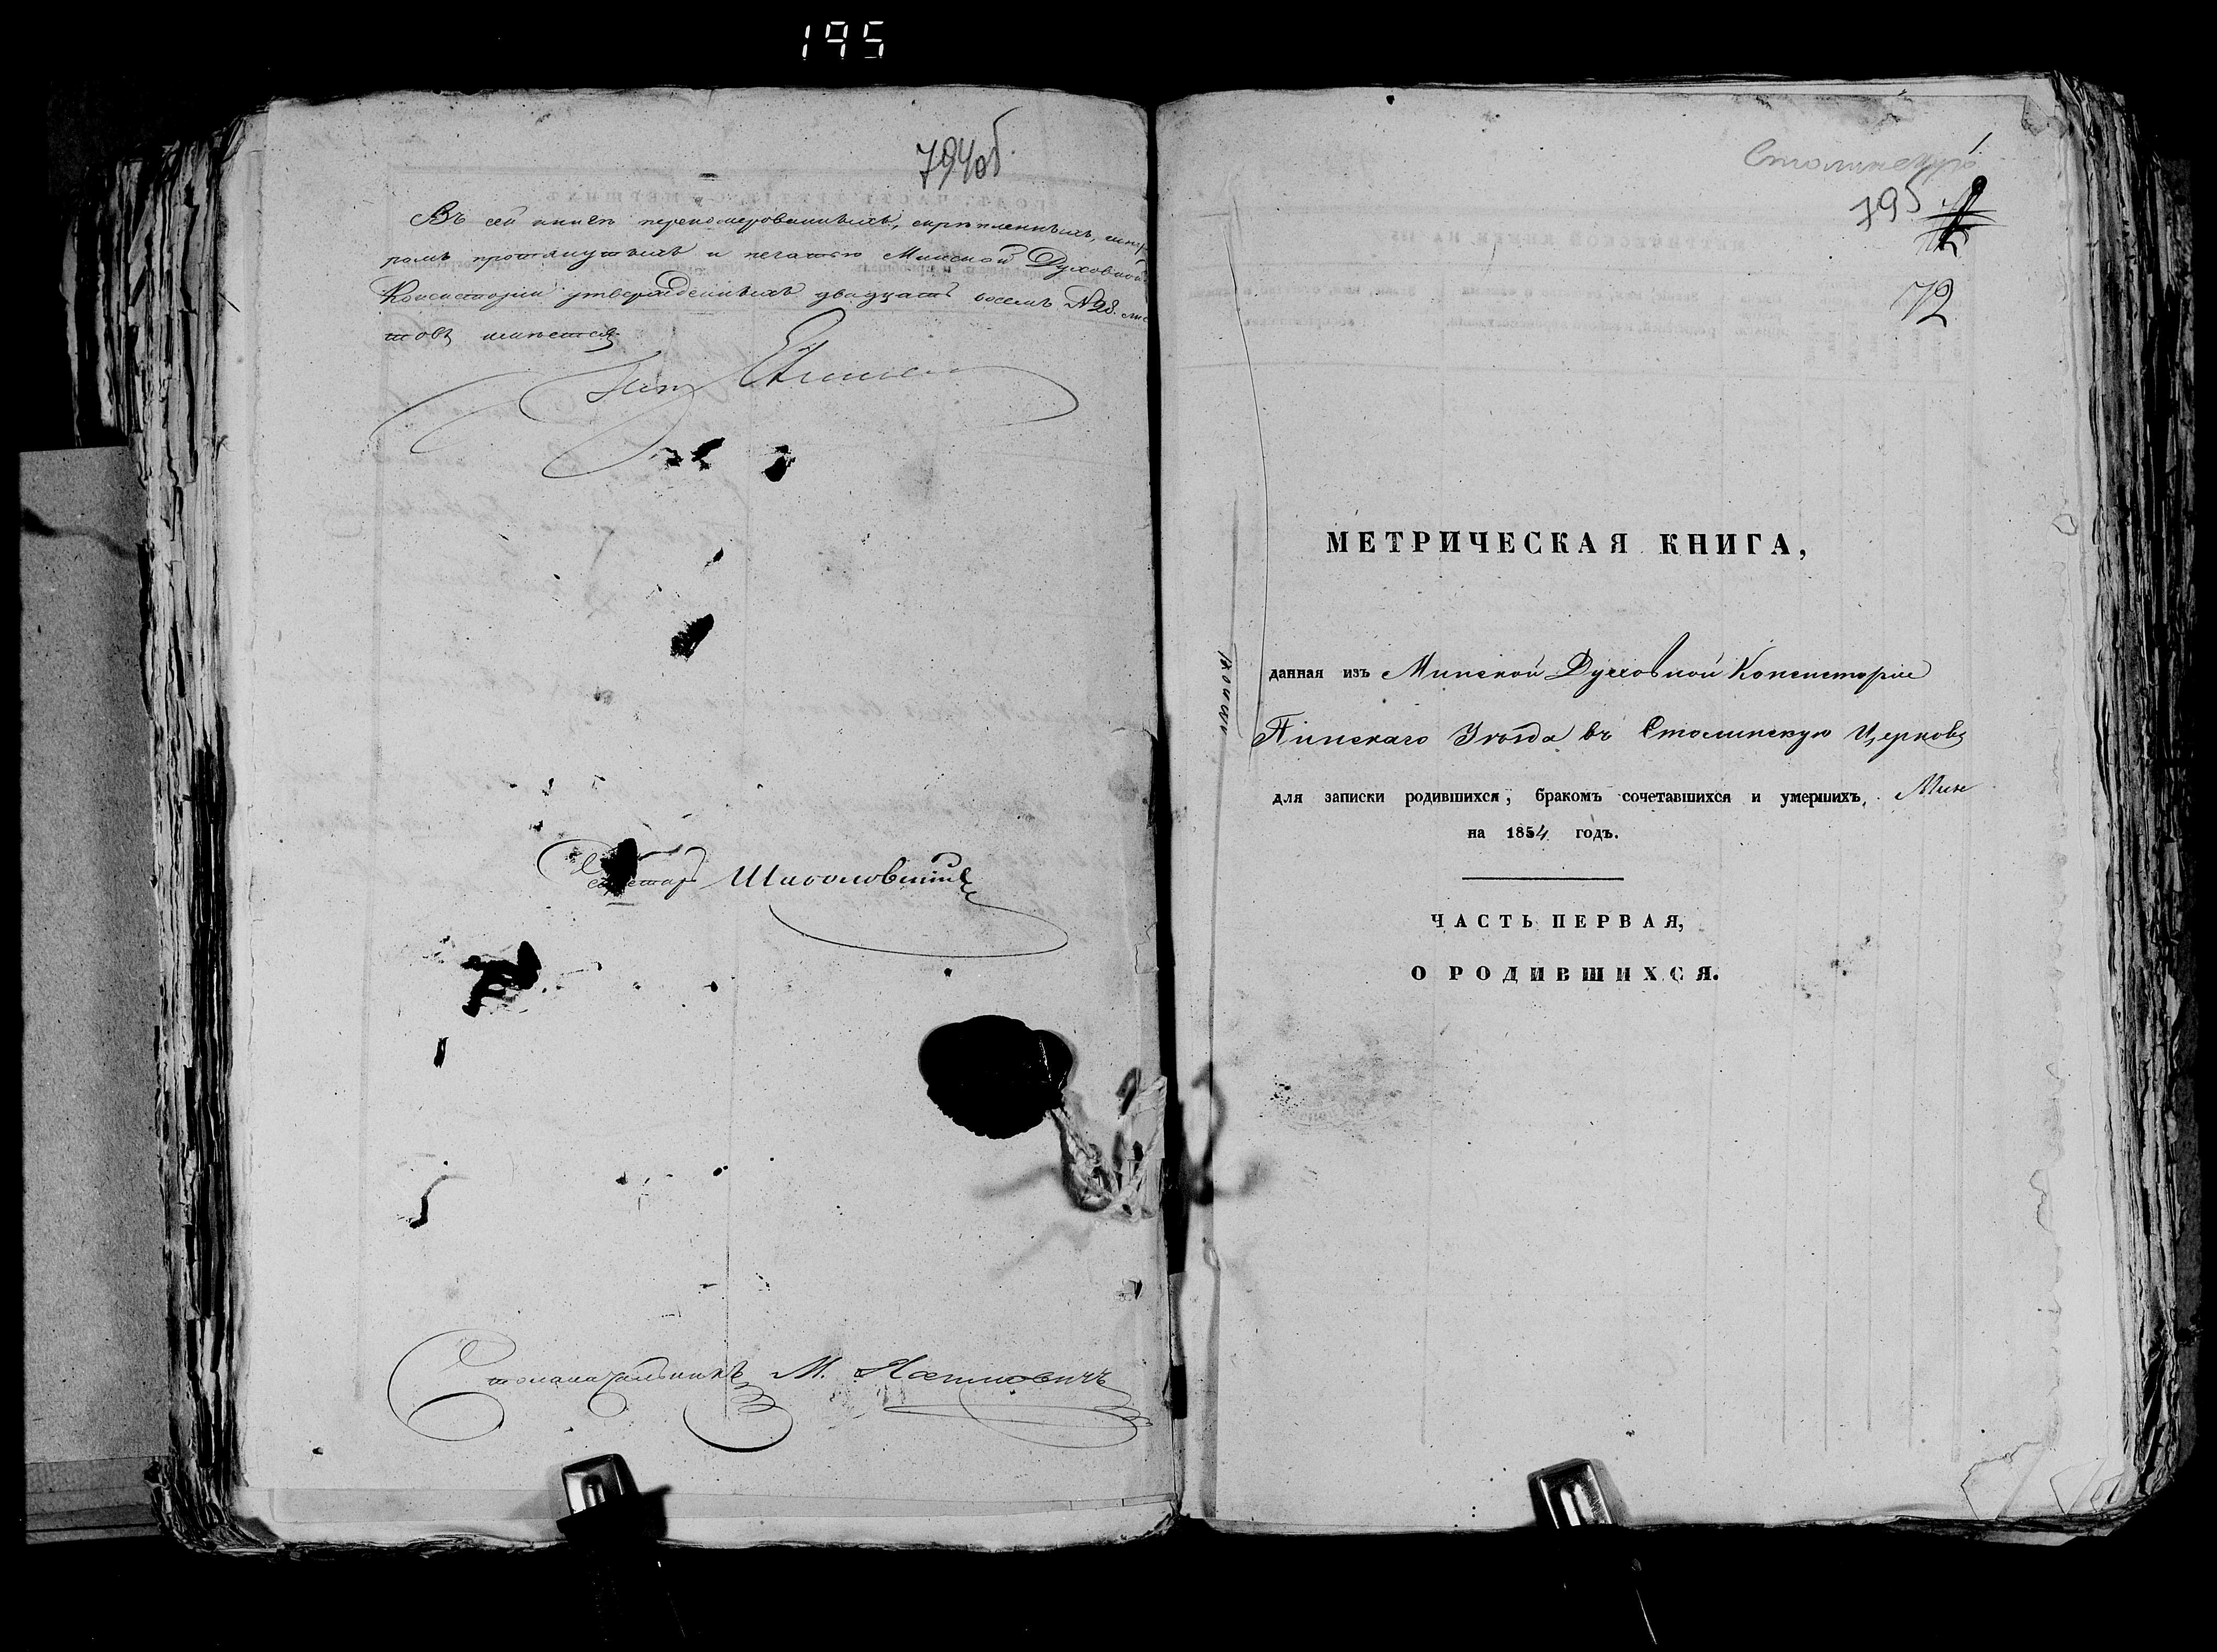 195
794об.
Въ сей книгѣ перенумерованныхъ, скрѣпленныхъ, шну-
ромъ протянутыхъ и печатью Минской Духовной
Консисторіи утвержденныхъ двадцать восемь №28. лис
товъ имѣется
Секретарь
Столоначальникъ М.
1
Столинскую
795
72
МЕТРИЧЕСКАЯ КНИГА,
данная изъ Минской Духовной Консисторіи
Пинскаго Уѣзда въ Столинскую Церковь
для записки родившихся, бракомъ сочетавшихся и умершихъ, Мин
на 1854 годъ.
ЧАСТЬ ПЕРВАЯ,
О РОДИВШИХСЯ.